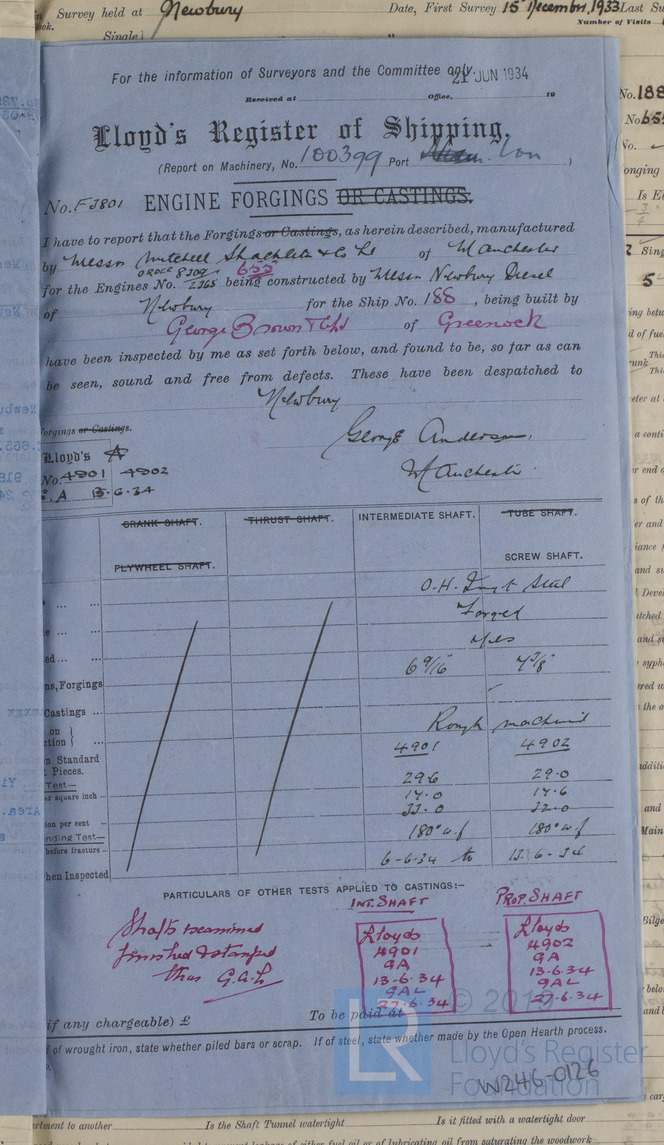 Survey held at Newbury Date, First Survey 15 December, 1933 Last Su
ook. Number of Visits
Single
For the information of Surveyors and the Committee only.
21 JUN 1934
Received at Office, 19
Lloyd's Register of Shipping.
(Report on Machinery, No. 100399 Port )
No. FJ801 ENGINE FORGINGS OR CASTINGS.
I have to report that the Forgings or Castings, as herein described, manufactured
by Messrs Mitchell Shackleton & Co Ld of Manchester
ORDER 8309 655
for the Engines No. 2365 being constructed by Messrs Newbury Diesel
of Newbury for the Ship No. 188, being built by
George Brown & Co of Greenock
have been inspected by me as set forth below, and found to be, so far as can
be seen, sound and free from defects. These have been despatched to
Newbury
Forgings or Castings.
George Anderson.
Manchester.
Lloyd's
No. 4901 4902
G.A 13-6-34
CRANK SHAFT. THRUST SHAFT. INTERMEDIATE SHAFT. TUBE SHAFT.
FLYWHEEL SHAFT. SCREW SHAFT.
O.H. Ingot Steel
Forged
Yes
6 9/16 4 7/8
ns, Forgings
Castings
Rough machined
on
ction
4901 4902
n Standard
t Pieces.
Test—
29.6 29.0
er square inch
17.0 17.6
33.0 32.0
ion per cent
nding Test—
180° u.f 180° u.f
before fracture
6-6-34 to 13-6-34
hen Inspected
PARTICULARS OF OTHER TESTS APPLIED TO CASTINGS:—
INT. SHAFT PROP SHAFT
Shafts examined
finished & stamped
thus G.A.L
Lloyds
4901
GA
13-6-34
GAL
27-6-34
Lloyds
4902
GA
13-6-34
GAL
27-6-34
if any chargeable) £ To be paid at
of wrought iron, state whether piled bars or scrap. If of steel, state whether made by the Open Hearth process.
LR
Lloyd's Register
Foundation
W246-0126
rtment to another Is the Shaft Tunnel watertight Is it fitted with a watertight door
of either fuel oil or of lubricating oil from saturating the woodwork